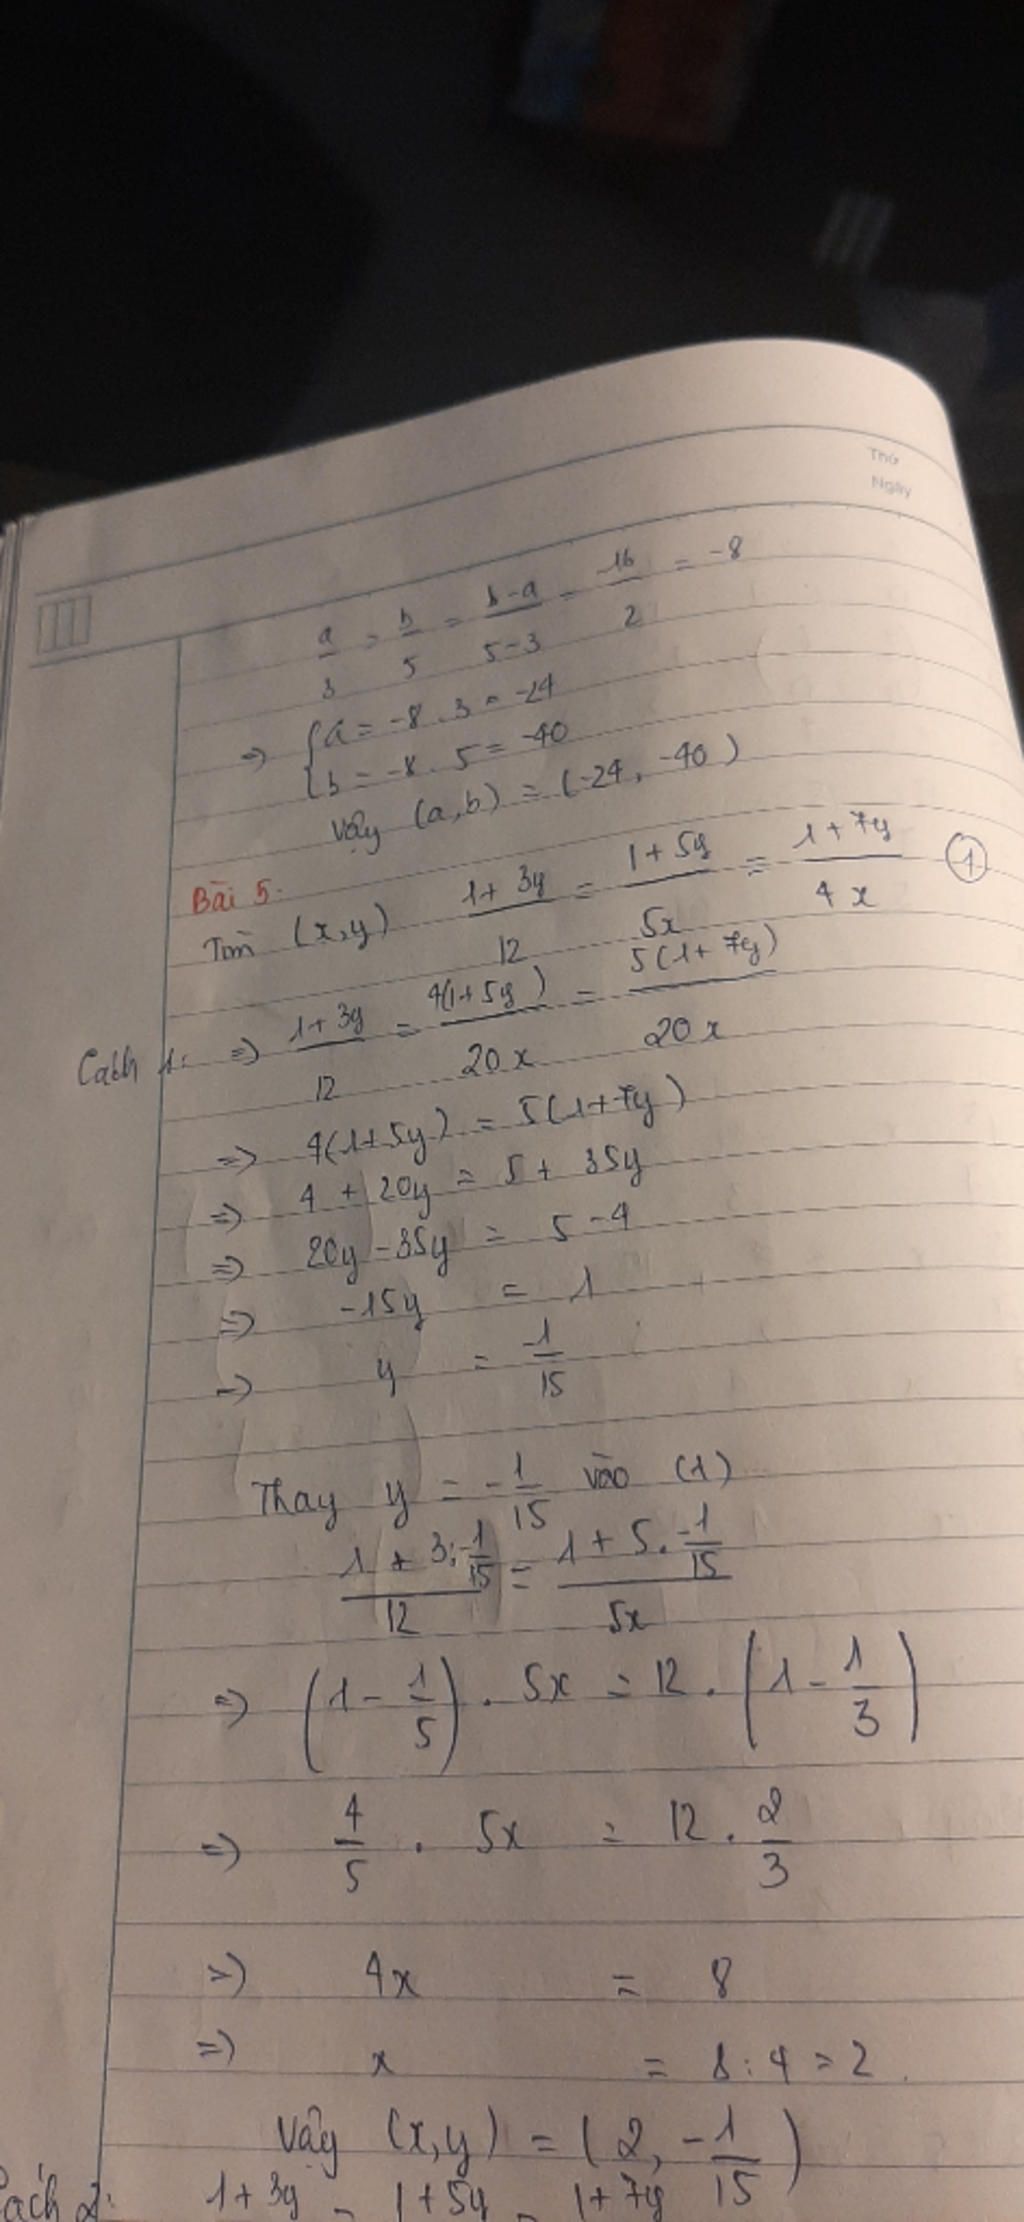 Thứ
Ngày
a/3 = b/5 = b-a/5-3 = -16/2 = -8
=> { a = -8 . 3 = -24
b = -8 . 5 = -40
Vậy (a,b) = (-24, -40)
Bài 5:
Tìm (x,y) 1+3y/12 = 1+5y/5x = 1+7y/4x ①
Cách 1: => 1+3y/12 = 4(1+5y)/20x = 5(1+7y)/20x
=> 4(1+5y) = 5(1+7y)
=> 4 + 20y = 5 + 35y
=> 20y - 35y = 5 - 4
=> -15y = 1
=> y = -1/15
Thay y = -1/15 vào (1)
1 + 3.-1/15/12 = 1 + 5.-1/15/5x
=> (1 - 1/5) . 5x = 12 . (1 - 1/3)
=> 4/5 . 5x = 12 . 2/3
=> 4x = 8
=> x = 8 : 4 = 2.
Vậy (x,y) = (2, -1/15)
Cách 2: 1+3y = 1+5y = 1+7y